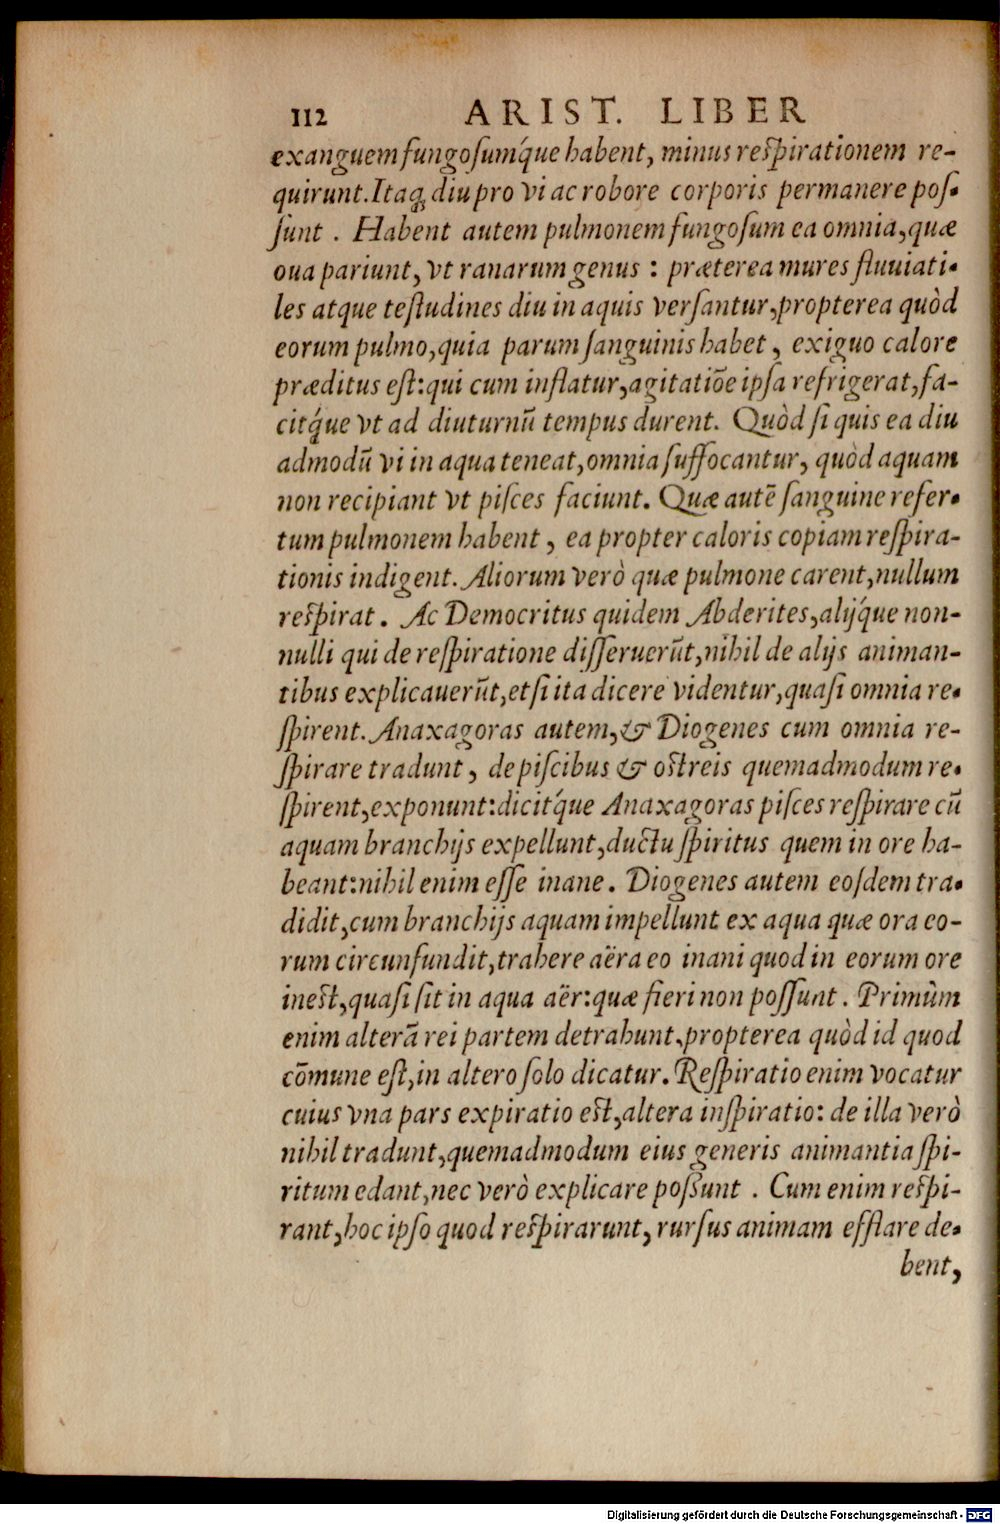 112 ARIST. LIBER
exanguem fungoſumq́ue habent, minus reſpirationem re-
quirunt. Itaq; diu pro vi ac robore corporis permanere poſ-
ſunt. Habent autem pulmonem fungoſum ea omnia, quæ
oua pariunt, vt ranarum genus: præterea mures fluuiati-
les atque teſtudines diu in aquis verſantur, propterea quòd
eorum pulmo, quia parum ſanguinis habet, exiguo calore
præditus eſt: qui cum inflatur, agitatiõe ipſa refrigerat, fa-
citq́ue vt ad diuturnũ tempus durent. Quòd ſi quis ea diu
admodũ vi in aqua teneat, omnia ſuffocantur, quòd aquam
non recipiant vt piſces faciunt. Quæ autẽ ſanguine refer-
tum pulmonem habent, ea propter caloris copiam reſpira-
tionis indigent. Aliorum verò quæ pulmone carent, nullum
reſpirat. Ac Democritus quidem Abderites, alijq́ue non-
nulli qui de reſpiratione diſſeruerũt, nihil de alijs animan-
tibus explicauerũt, etſi ita dicere videntur, quaſi omnia re-
ſpirent. Anaxagoras autem, & Diogenes cum omnia re-
ſpirare tradunt, de piſcibus & oſtreis quemadmodum re-
ſpirent, exponunt: dicitq́ue Anaxagoras piſces reſpirare cũ
aquam branchijs expellunt, ductu ſpiritus quem in ore ha-
beant: nihil enim eſſe inane. Diogenes autem eoſdem tra-
didit, cum branchijs aquam impellunt ex aqua quæ ora eo-
rum circunfundit, trahere aëra eo inani quod in eorum ore
ineſt, quaſi ſit in aqua aër: quæ fieri non poſſunt. Primùm
enim alterã rei partem detrahunt, propterea quòd id quod
cõmune eſt, in altero ſolo dicatur. Reſpiratio enim vocatur
cuius vna pars expiratio eſt, altera inſpiratio: de illa verò
nihil tradunt, quemadmodum eius generis animantia ſpi-
ritum edant, nec verò explicare poßunt. Cum enim reſpi-
rant, hoc ipſo quod reſpirarunt, rurſus animam efflare de-
bent,
Digitalisierung gefördert durch die Deutsche Forschungsgemeinschaft - DFG